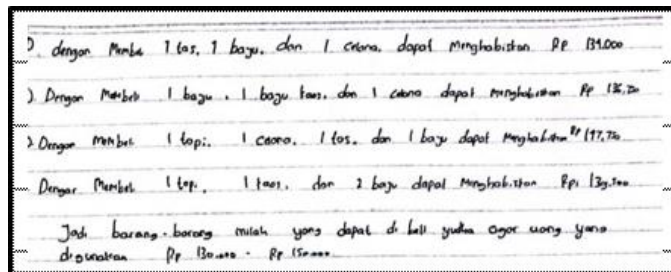 dengan Membeli 1 tas, 1 baju, dan 1 celana dapat menghabiskan Rp 139.000
2. Dengan Membeli 1 baju, 1 baju kaos, dan 1 celana dapat menghabiskan Rp
3. Dengan membeli 1 topi, 1 celana, 1 tas, dan 1 baju dapat menghabiskan Rp
Dengan Membeli 1 topi, 1 kaos, dan 2 baju dapat menghabiskan Rp. 139.500
Jadi barang-barang milah yang dapat di beli yudha agar uang yang
digunakan Rp 130.000 - Rp 150.000